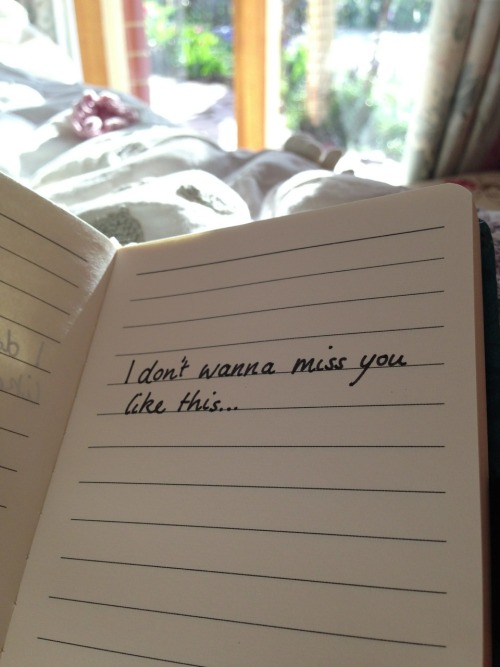 I don't wanna miss you
like this...